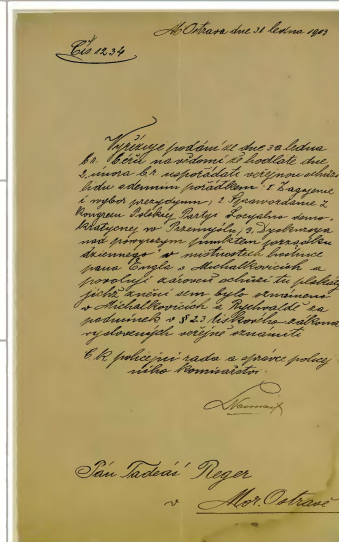 M. Ostrava dne 31 ledna 1903
Čís 1234
Vyřizuje podání ze dne 30 ledna
b. r. běřu na vědomí že hodláte dne
2. února b. r. uspořádati veřejnou schůzi
lidu s denním pořádkem: 1 Zagajenie
i wybor prezydyum, 2 Sprawozdanie z
Kongresu Polskiej Partyi Socyalno demo-
kratycznej w Przemyślu, 3. Dyskusya
nad powyższym punktem porządku
dziennego v místnostech hostince
pana Engla v Michalkovicích a
povoluji zároveň ochůzi tu plakáty
jichž znění sem bylo oznámeno
v Michalkovicích a Rychvaldě za
podmínek v § 23 tiskového zákona
vyslovených veřejně oznámiti
C k policejní rada a správce policej
ního komisařství
Pán Tadeáš Reger
v Mor. Ostravě